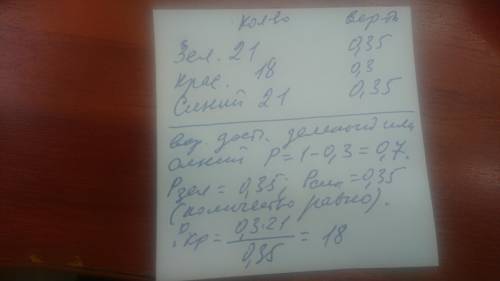 Кол-во Вер-ть
Зел. 21 0,35
Крас. 18 0,3
Синий 21 0,35
Вер. дост. зеленый или
синий P=1-0,3=0,7.
Pзел = 0,35; Pсин = 0,35
(количество равно).
Kр = 0,3·21 / 0,35 = 18